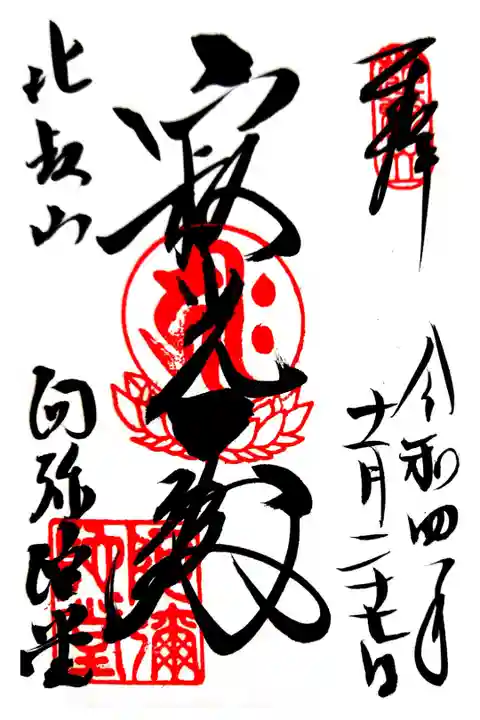 奉拝
令和四年
十一月二十七日
寂光殿
比叡山
阿弥陀堂
阿彌
陀堂